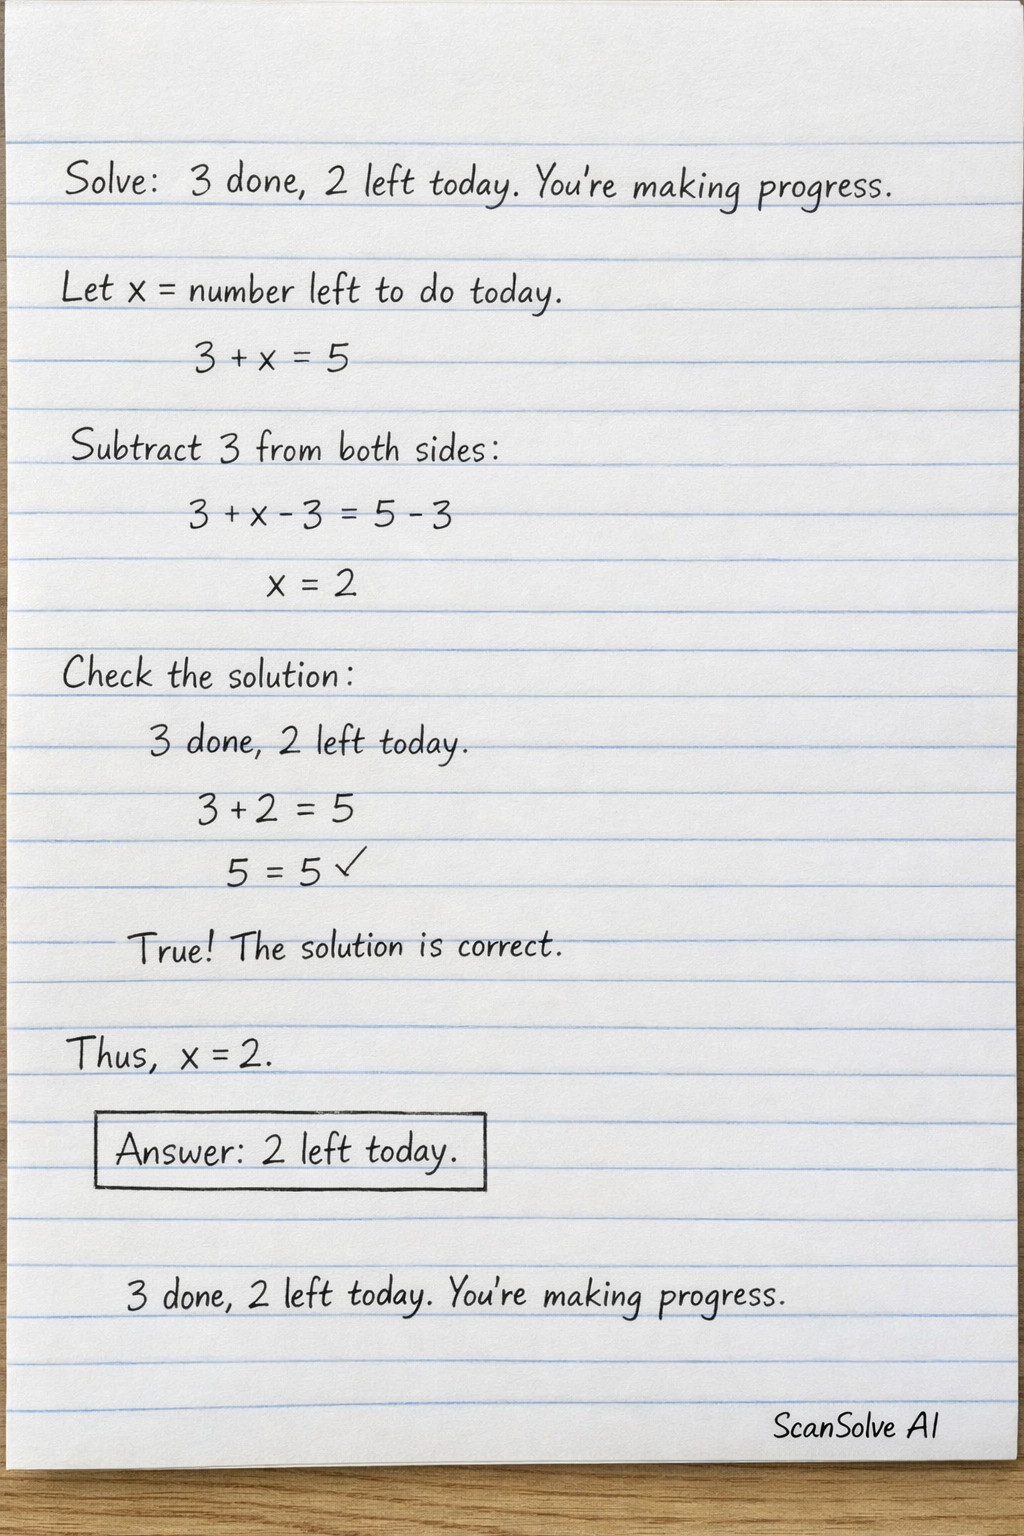 Solve: 3 done, 2 left today. You're making progress.
Let x = number left to do today.
3 + x = 5
Subtract 3 from both sides:
3 + x - 3 = 5 - 3
x = 2
Check the solution:
3 done, 2 left today.
3 + 2 = 5
5 = 5 ✓
True! The solution is correct.
Thus, x = 2.
Answer: 2 left today.
3 done, 2 left today. You're making progress.
ScanSolve AI